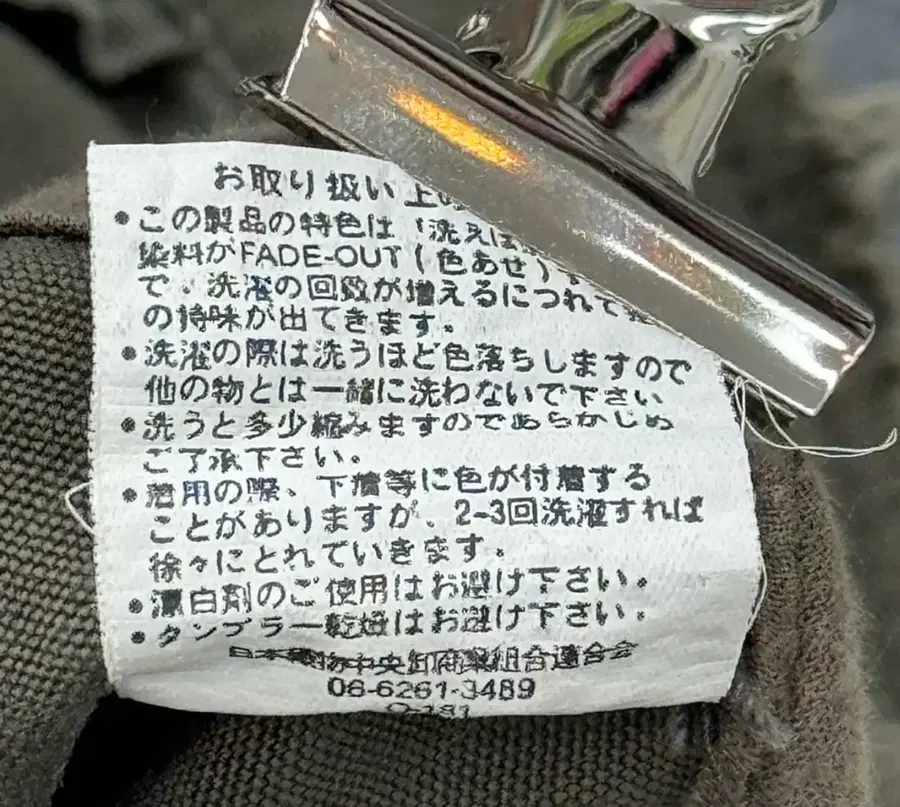 お取り扱い上の
• この製品の特色は「洗えば
染料がFADE-OUT(色あせ)
で、洗濯の回数が増えるにつれて
の特味が出てきます。
• 洗濯の際は洗うほど色落ちしますので
他の物とは一緒に洗わないで下さい
• 洗うと多少縮みますのであらかじめ
ご了承下さい。
• 着用の際、下着等に色が付着する
ことがありますが、2-3回洗濯すれば
徐々にとれていきます。
• 漂白剤のご使用はお避け下さい。
• タンブラー乾燥はお避け下さい。
中央卸商業組合連合会
06-6261-3489